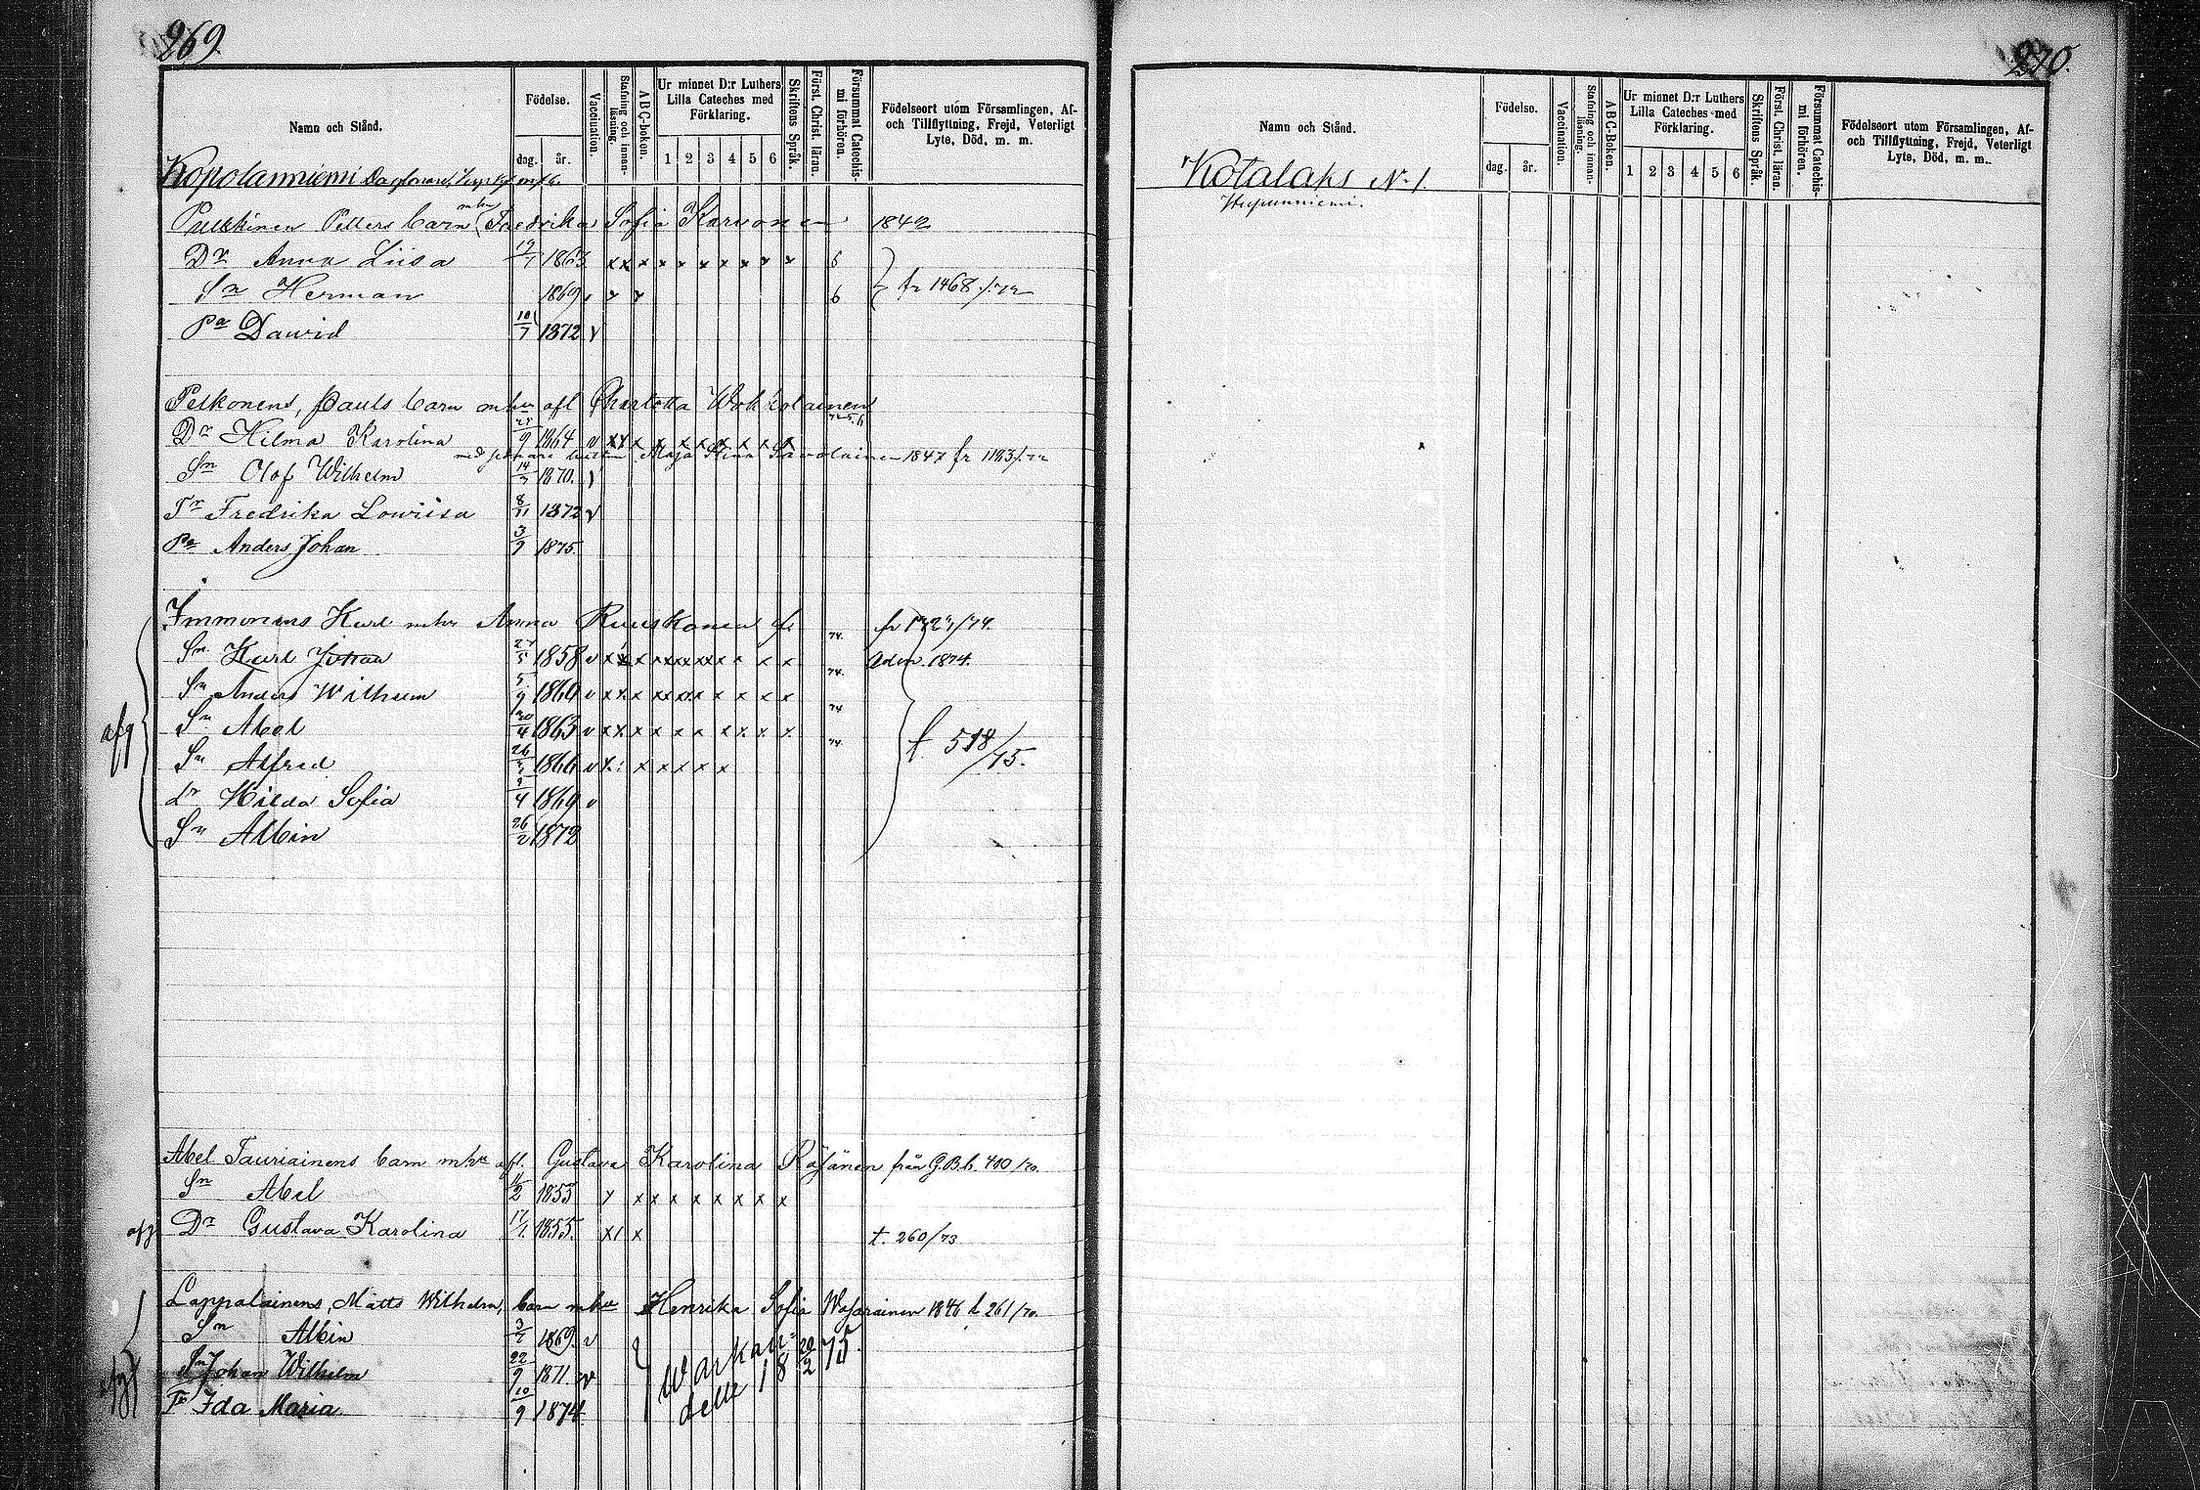 269.
Namn och Stånd.
Födelse.
dag. år.
Vaccination.
Stafning och innan-läsning.
ABC-boken.
Ur minnet D:r Luthers Lilla Cateches med Förklaring.
1 2 3 4 5 6
Skriftens Språk.
Först. Christ. läran.
Försummat Catechis-mi förhören.
Födelseort utom Församlingen, Af- och Tillflyttning, Frejd, Veterligt Lyte, Död, m. m.
Kopolanniemi
Pulkkinen Petters barn mhu Fredrika Sofia Karvonen 1842
Dr Anna Liisa 19/7 1863 x x x x x x x x x x 6
Sn Herman 1869 6 fr 1468/72
Pa Dawid 10/7 1872 v
Pelkonens, Pauls barn mhu afl Charlotta
Dr Hilma Karolina 9 1864 v x x x x x x x x x
Maja Stina Savolainen 1847 fr 1183/72
Sn Olof Wilhelm 14/7 1870. v
Tr Fredrika Lowiisa 8/11 1872 v
Pa Anders Johan 3/9 1875.
Immonens Karl mhu Anna Ruuskanen 74. /74.
Sn Karl Johan 27/5 1858 v x x x x x x x x x x x 74. Adm. 1874.
Sn Anders Wilhelm 5/9 1860 v x x x x x x x x x x 74
Sn Abel 20/4 1863 v x x x x x x x x x x 74
afg Sn Alfred 26 1866 v x x x x x x t 518/75.
Dr Hilda Sofia 4 1869 v
Sn Albin 26/2 1872
Abel Tauriainens barn mhu afl. Gustava Karolina Räsänen från G.B.h. 410/70.
Sn Abel 2 1853 x x x x x x x x x
afg Dr Gustava Karolina 17/1 1855. x x t. 260/73
Lappalainens, Matts Wilhelm, barn mhu Henrika Sofia 1846 t 261/70.
Sn Albin 3 1869. v
afg Sn Johan Wilhelm 22/9 1871. v Warkaus den 18 20/2 75.
Tr Ida Maria 10/9 1874
270.
Namn och Stånd.
Födelse.
dag. år.
Vaccination.
Stafning och innan-läsning.
ABC-Boken.
Ur minnet D:r Luthers Lilla Cateches med Förklaring.
1 2 3 4 5 6
Skriftens Språk.
Först. Christ. läran.
Försummat Catechis-mi förhören.
Födelseort utom Församlingen, Af- och Tillflyttning, Frejd, Veterligt Lyte, Död, m. m.
Kotalaks N:1.